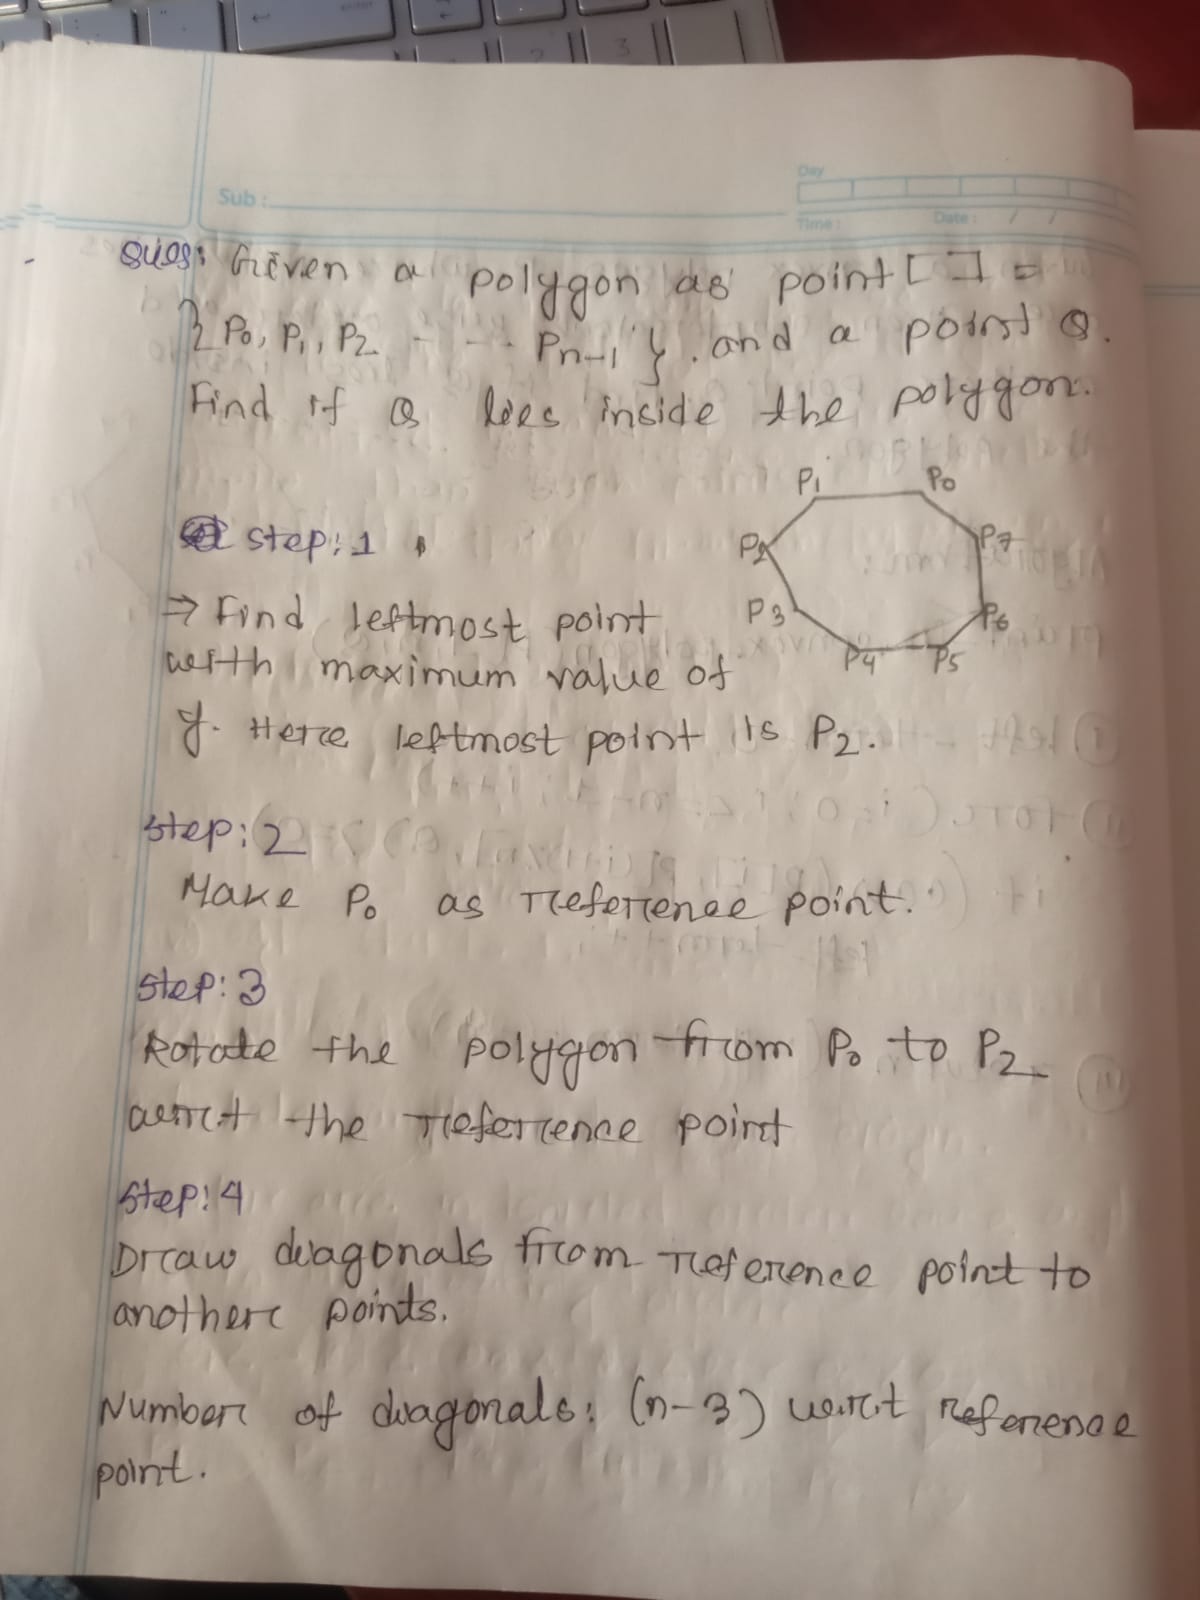 Sub :
Day
Time :
Date : / /
Ques: Given a polygon as point [ ] =
{ P0, P1, P2 - - - - Pn-1 }. and a point Q.
Find if Q lies inside the polygon.
P1 P0
P2 P7
P3 P6
P4 P5
step: 1
⇒ Find leftmost point
with maximum value of
y. Here leftmost point is P2.
step: 2
Make P0 as reference point.
step: 3
Rotate the polygon from P0 to P2
w.r.t the reference point
step: 4
Draw diagonals from reference point to
another points.
Number of diagonals: (n-3) w.r.t reference
point.